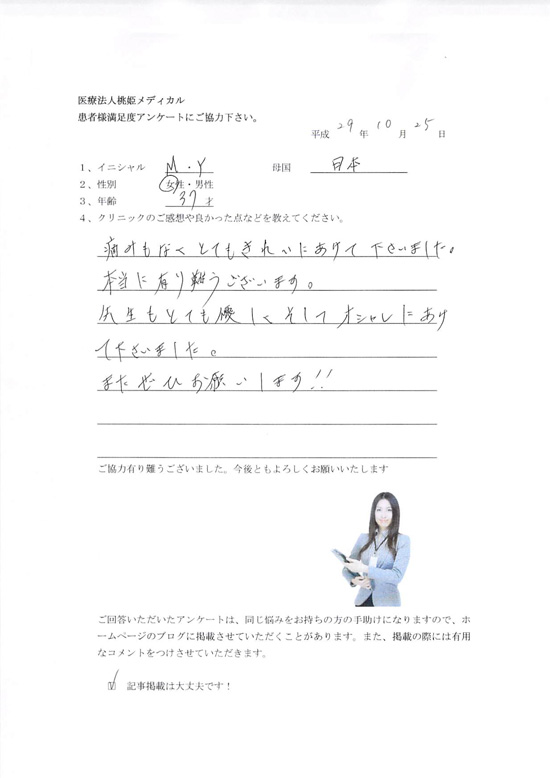 医療法人桃姫メディカル
患者様満足度アンケートにご協力下さい。
平成 29 年 10 月 25 日
1、イニシャル M・Y 母国 日本
2、性別 女性・男性
3、年齢 37 才
4、クリニックのご感想や良かった点などを教えてください。
痛みもなくとてもきれいにあけて下さいました。
本当に有り難うございます。
先生もとても優しくそしてオシャレにあけ
て下さいました。
またぜひお願いします!!
ご協力有り難うございました。今後ともよろしくお願いいたします
ご回答いただいたアンケートは、同じ悩みをお持ちの方の手助けになりますので、ホ
ームページのブログに掲載させていただくことがあります。また、掲載の際には有用
なコメントをつけさせていただきます。
☑ 記事掲載は大丈夫です!